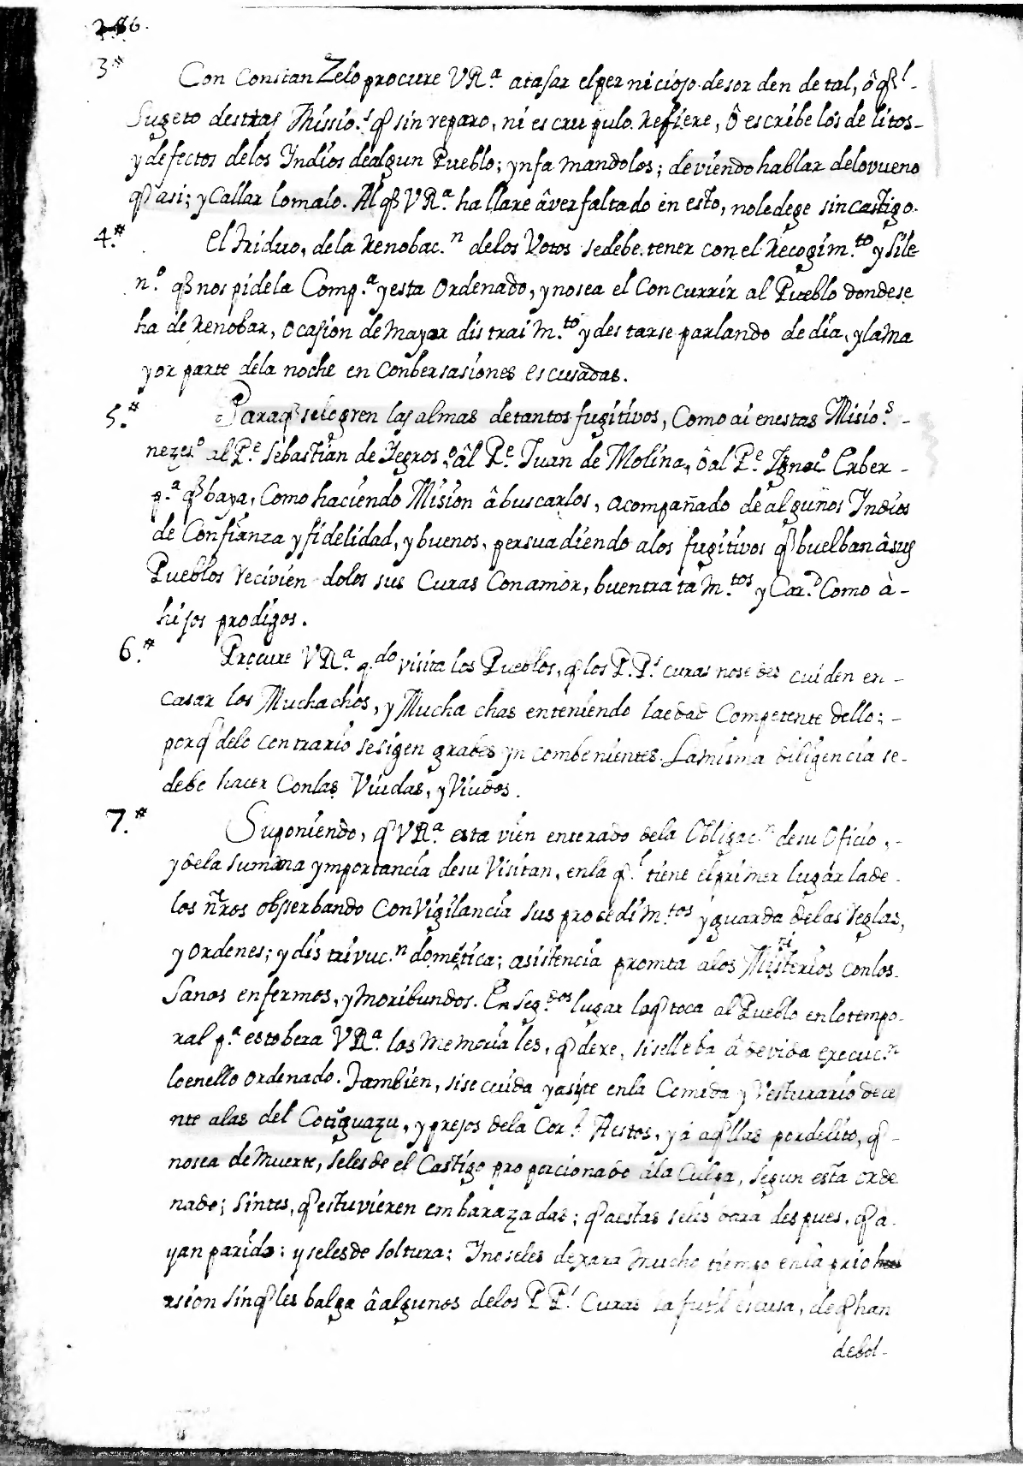 286.
3.# Con Constan Zelo procure VR.ª atajar el pernicioso desorden de tal, ô ql.-
Sugeto destas Missio.s q sin reparo, ni escrupulo. Refiere, Ô escribe los delitos-
y defectos delos Yndios dealgun Pueblo; ynfamandolos; deviendo hablar delo vueno
q asi; y Callar lo malo. Al q VR.ª hallare âver faltado en esto, noledege sin castigo.
4.# El triduo, dela Renobac.n delos Votos sedebe tener con el Recogim.to y Sile-
n.o q nos pide la Comp.ª y esta Ordenado, y no sea el Concurrir al Pueblo dondese
ha de Renobar, ocasion de mayor distraim.to y destarse parlando de dia, y la ma
yor parte dela noche en Conbersasiones escusadas.
5.# Paraq selogren las almas detantos fugitivos, Como ai enestas Misio.s -
nezes.o al P.e Sebastian de Yegros, o âl P.e Juan de Molina, ô al P.e Ygnac.o Erber -
p.ª q baya, Como haciendo Mision â buscarlos, acompañado de algunos Yndios
de Confianza y fidelidad, y buenos, persuadiendo alos fugitivos q buelban â sus
Pueblos recivien dolos sus Curas Con amor, buen trata m.tos y Car.d Como à -
hijos prodigos.
6.# Procure VR.ª q.do visita los Pueblos, q los P.P.s curas nose des cuiden en -
Casar los Muchachos, y Mucha chas enteniendo laedad Competente dello; -
porq delo contrario sesigen grabes yn combenientes. La misma diligencia se-
debe hacer Conlas Viudas, y Viudos.
7.# Suponiendo, q VR.ª esta vien enterado dela Obligac.n de su Oficio, -
y dela Summa ymportancia desu Visitan, enla q.l tiene el primer lugar la de-
los ñros obserbando Con Vigilancia sus procedim.tos y guarda delas reglas,
y ordenes; y dis trivuc.n dométtica; asistencia promta alos Misterios con los-
Sanos enfermos, y moribundos. En Seg.dos lugar lo q toca al Pueblo en lo tempo-
ral p.ª esto bera VR.ª los memoria les, q dexe, si selle ba â devida execuc.n
lo en ello ordenado. Tambien, si se cuida y asiste en la Comida y Vesturario dece
nte alas del Cotiguazu, y presos dela Cor.l Aestos, y á aqllas por delito, q -
nosea de Muerte, Seles de el Castigo proporcionado ála Culpa, segun esta orde
nado; Sintes, q estuvieren em barazadas; q aestas seles dara despues, q á-
yan parido: y seles de soltura: Y no seles dexara mucho tiempo en la prio
rsion sin q les balga â algunos delos P P.s Curas la futil escusa, de q han
debol-